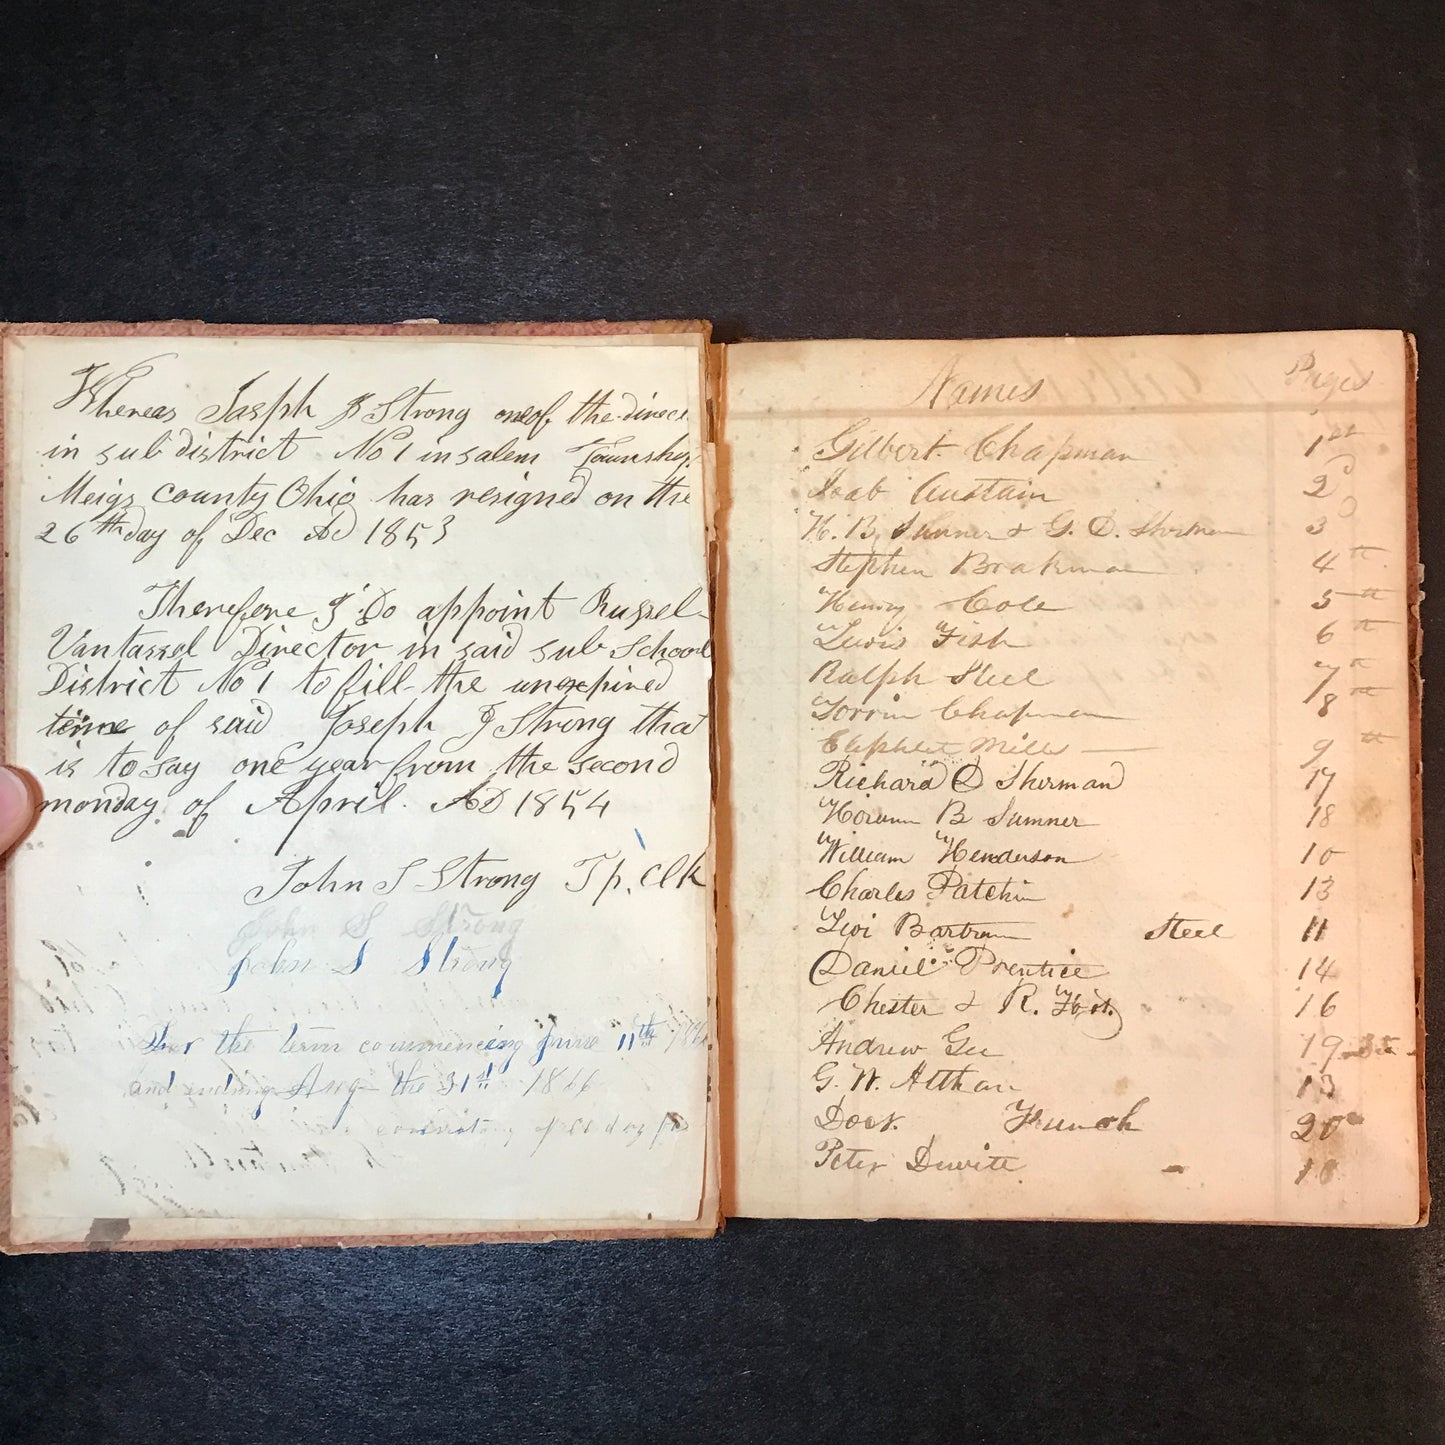 Whereas Jasph J Strong one of the direct
in sub district No 1 in salem Townshp
Meigs county Ohio has resigned on the
26th day of Dec AD 1853
Therefore I Do appoint Russel
Vantassel Director in said sub School
District No 1 to fill the unexpired
time of said Joseph J Strong that
is to say one year from the second
monday of April AD 1854
John S Strong Tp, Clk
John S Strong
John S Strong
For the term commencing June 11th
and ending Aug the 31st 1866
Names Pages
Gilbert Chapman 1st
Austain 2d
H. B. Sumner & G. D. Sherman 3d
Stephen Brakman 4th
Henry Cole 5th
Lewis Fish 6th
Ralph Steel 7th
Torrin Chapman 8th
Eliphlet Mills 9th
Richard D Sherman 17
Horam B Sumner 18
William Henderson 10
Charles Patchin 13
Levi Bartram Steel 11
Daniel Prentice 14
Chester & R. 16
Andrew Gee 19
G. W. 13
Doct. French 20
Peter Dewitt 18